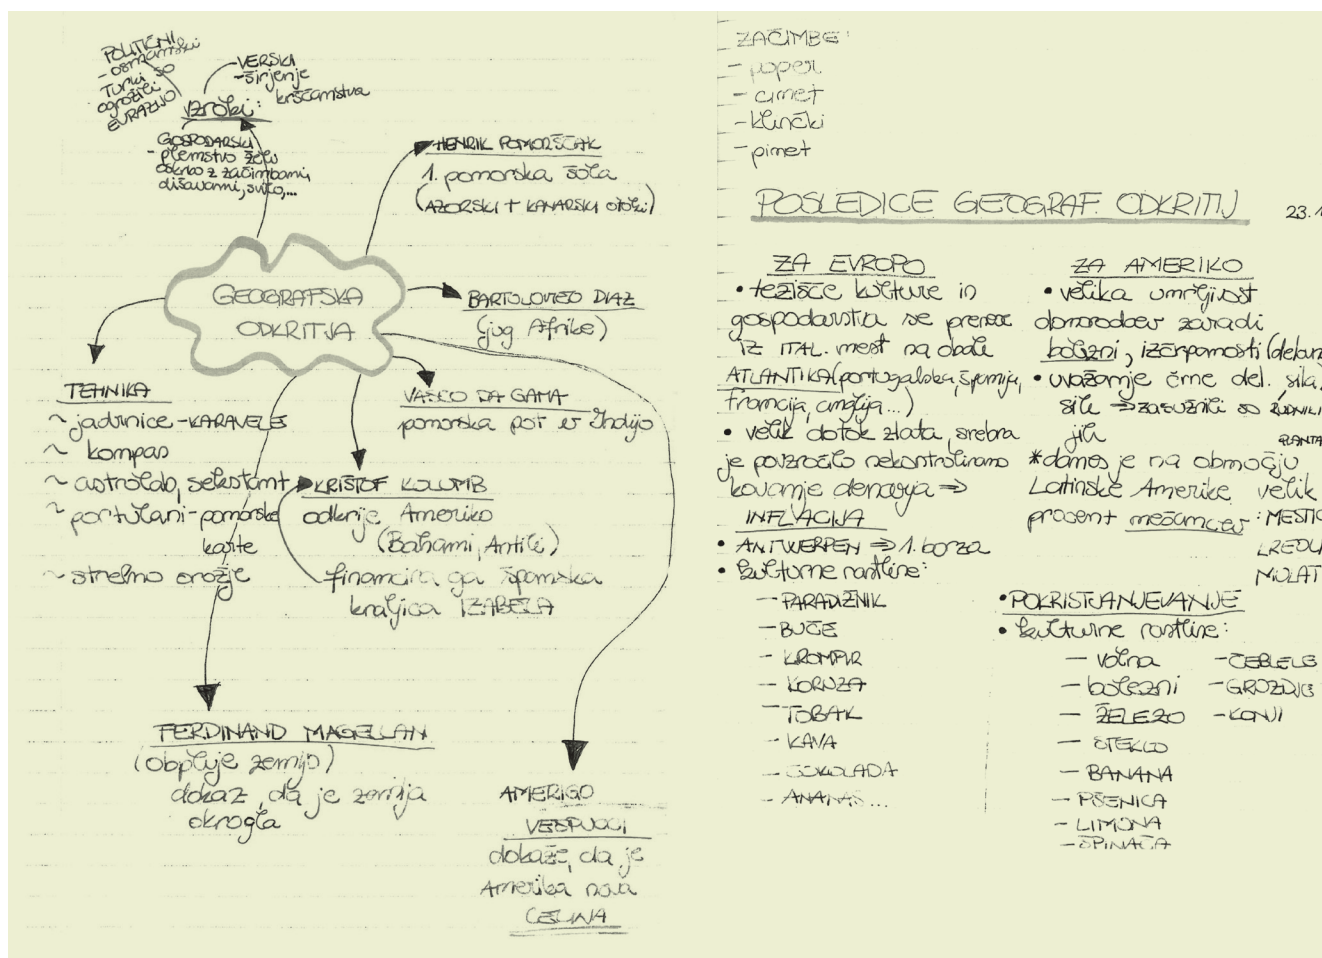 POLITIČNI
- osmanski
Turki so
ogrozili
EVRAZIJO
VERSKI
- širjenje
krščanstva
vzroki:
GOSPODARSKI
- plemstvo želi
oskrbo z začimbami,
dišavami, svilo,...
HENRIK POMORŠČAK
1. pomorska šola
(AZORSKI + KANARSKI otoki)
GEOGRAFSKA
ODKRITJA
BARTOLOMEO DIAZ
(jug Afrike)
VASCO DA GAMA
pomorska pot v Indijo
TEHNIKA
~ jadrnice - KARAVELE
~ kompas
~ astrolab, sekstant
~ portulani - pomorske
karte
~ strelno orožje
KRIŠTOF KOLUMB
odkrije Ameriko
(Bahami, Antili)
financira ga španska
kraljica IZABELA
FERDINAND MAGELLAN
(obpluje zemljo)
dokaz, da je zemlja
okrogla
AMERIGO
VESPUCCI
dokaže, da je
Amerika nova
CELINA
ZAČIMBE:
- poper
- cimet
- klinčki
- piment
POSLEDICE GEOGRAF. ODKRITIJ
23.1
ZA EVROPO
• težišče kulture in
gospodarstva se prenese
iz ITAL. mest na obale
ATLANTIKA (portugalska, španija,
francija, anglija...)
• velik dotok zlata, srebra
je povzročilo nekontrolirano
kovanje denarja ⇒
INFLACIJA
• ANTWERPEN ⇒ 1. borza
• kulturne rastline:
- PARADIŽNIK
- BUČE
- KROMPIR
- KORUZA
- TOBAK
- KAVA
- ČOKOLADA
- ANANAS...
ZA AMERIKO
• velika umrljivost
domorodcev zaradi
bolezni, izčrpanosti (delavn
• uvažanje črne del. sila,
sile ⇒ zasužnili so RUDNIKI
jih PLANTA
* danes je na območju
Latinske Amerike velik
procent mešancev: MESTIC
MULAT
• POKRISTJANJEVANJE
• kulturne rastline:
- volna
- bolezni
- ŽELEZO
- STEKLO
- BANANA
- PŠENICA
- LIMONA
- ŠPINAČA
- ČEBELE
- GROZDJE
- KONJI